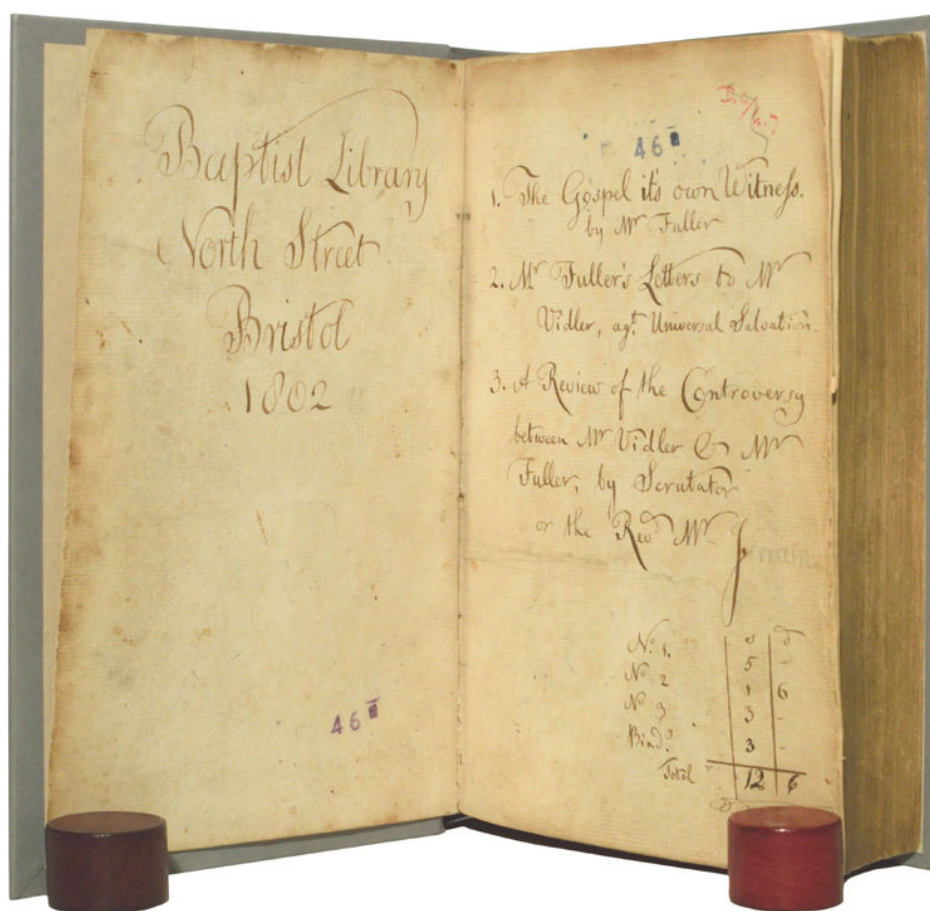 Baptist Library
North Street
Bristol
1802
46a
46a
1. The Gospel it's own Witness.
by Mr Fuller
2. Mr Fuller's Letters to Mr
Vidler, agt. Universal Salvation
3. A Review of the Controversy
between Mr Vidler & Mr
Fuller, by Scrutator
or the Revd Mr J
s d
No. 1. 5 -
No 2 1 6
No 3 3 -
Bindg. 3 -
Total 12 6